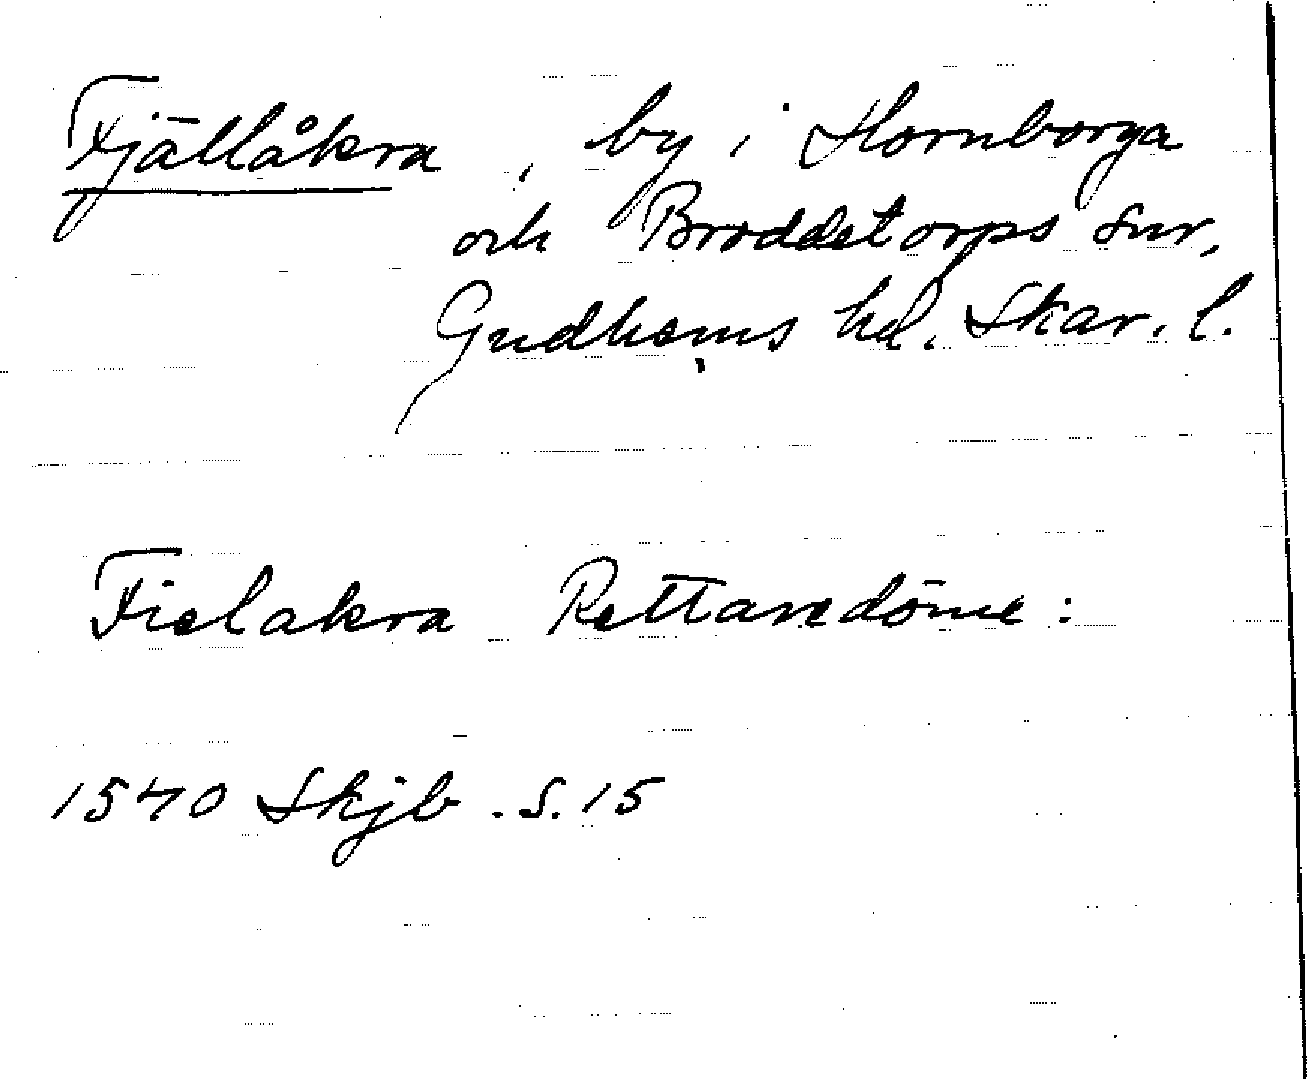 Fjällåkra, by i Hornborga
och Broddetorps snr,
Gudhems hd. Skar. l.
Fielakra Rettaredöme:
1540 Skjb. s. 15